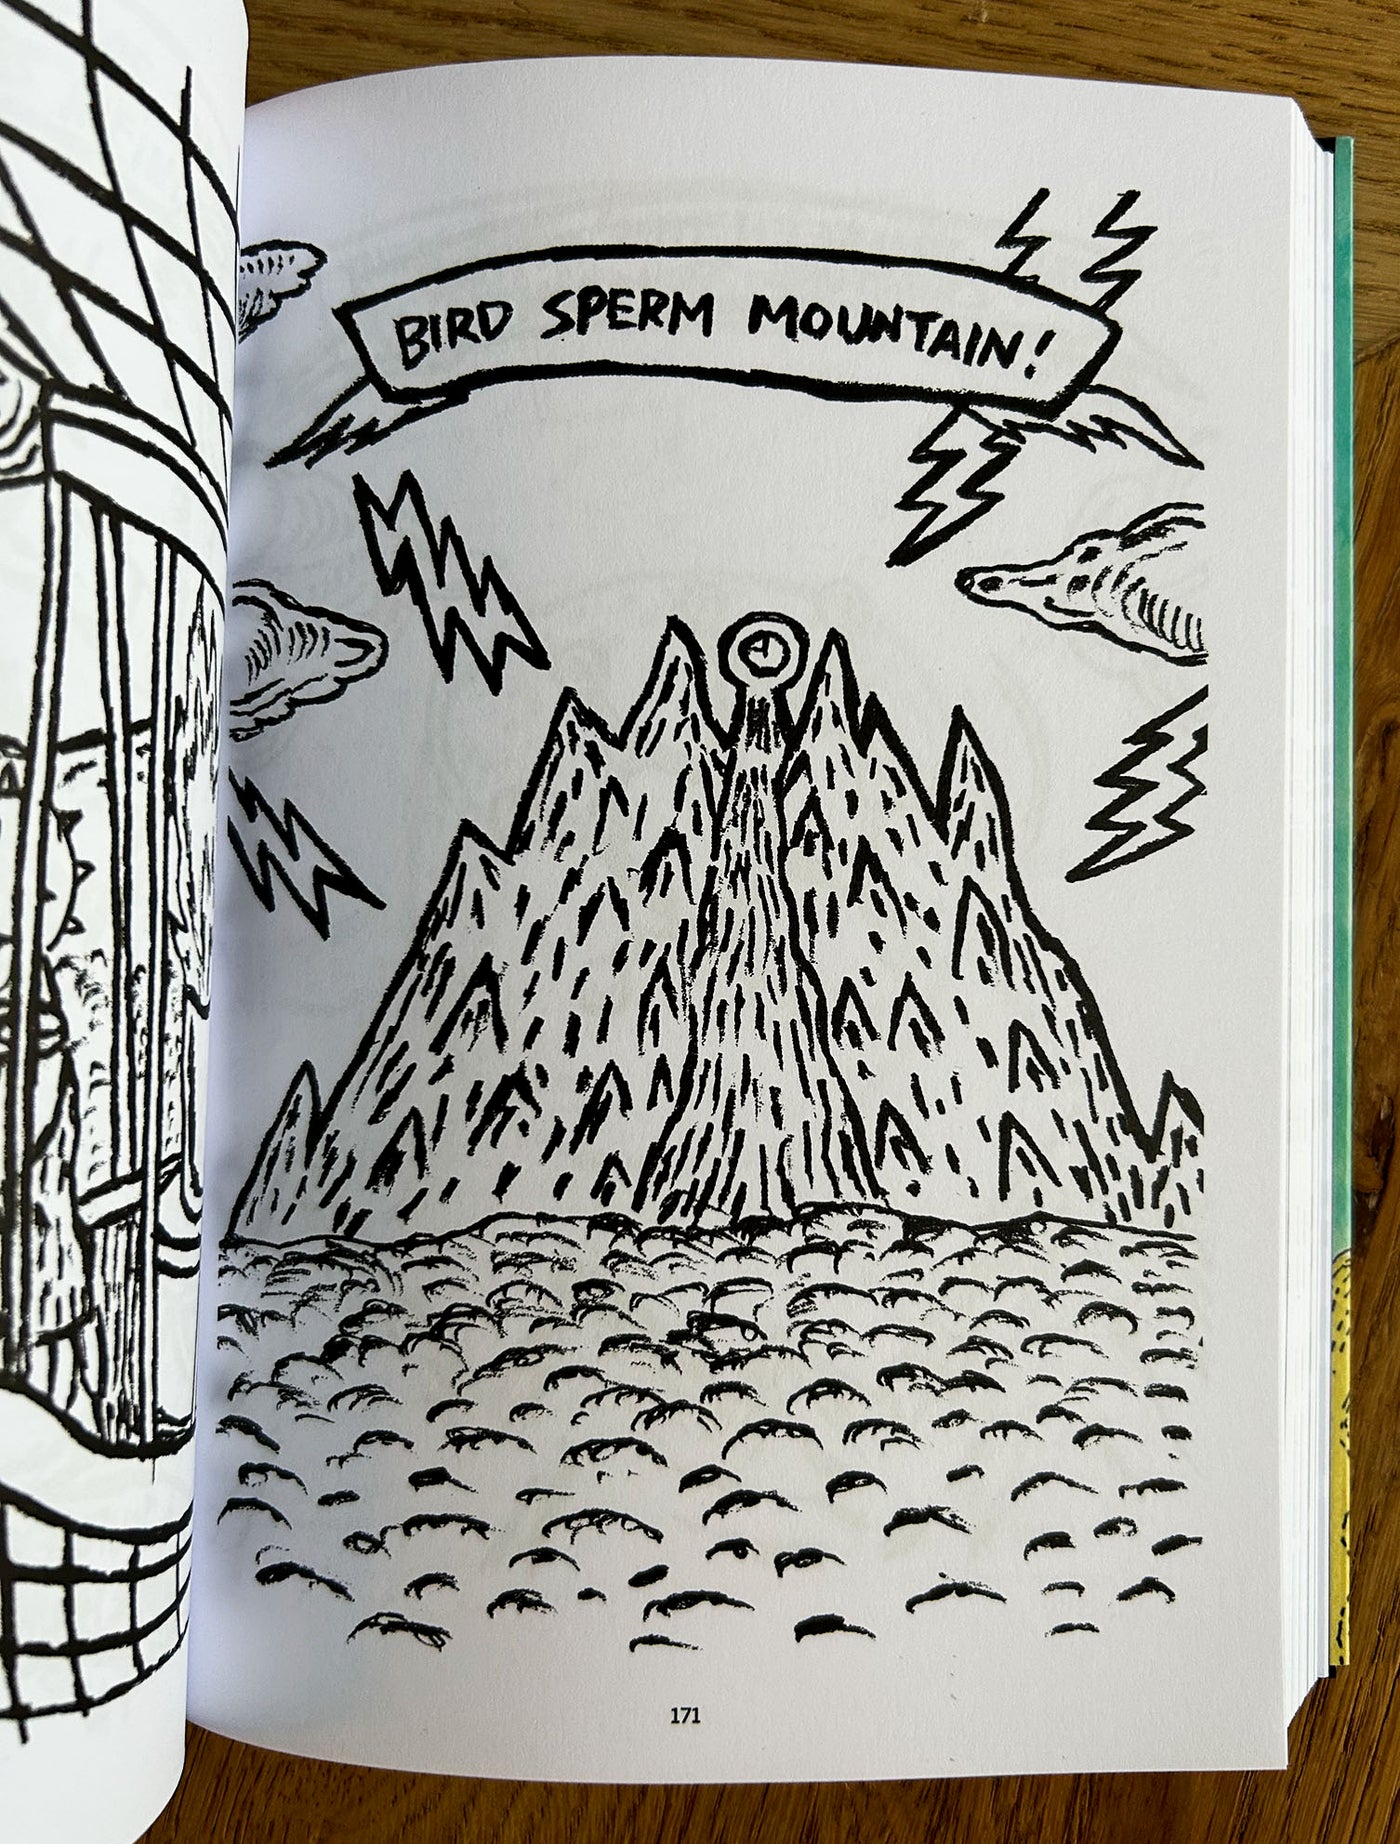 BIRD SPERM MOUNTAIN!
171